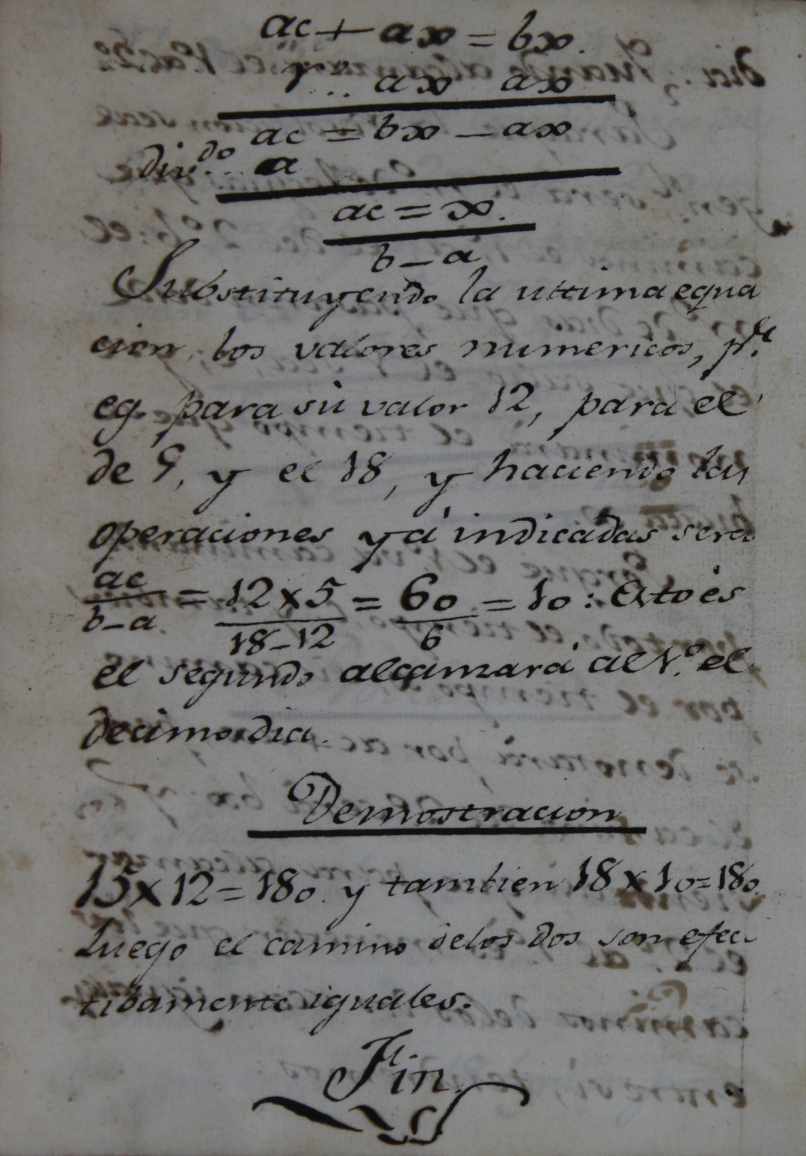 ac + ax = bx.
r.. ax ax
ac = bx - ax
div.do.. a
ac = x.
b - a
Substituyendo la ultima equa
cion los valores numericos, p.r
eg. para su valor 12, para el
de 5, y el 18, y haciendo las
operaciones yá indicadas sera
ac/b-a = 12x5/18-12 = 60/6 = 10: Esto és
el segundo alcamzará al 1.o el
decimo dia.
Demostracion
15x12=180. y tambien 18x10=180
Luego el camino delos dos son efec
tibamente iguales.
Fin.